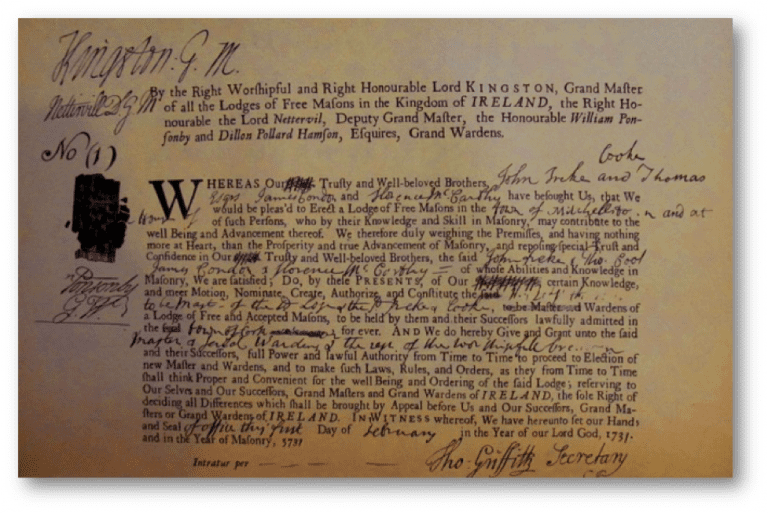 Kingston G. M.
Nettervill D. G M
By the Right Worſhipful and Right Honourable Lord KINGSTON, Grand Maſter
of all the Lodges of Free Maſons in the Kingdom of IRELAND, the Right Ho-
nourable the Lord Nettervil, Deputy Grand Maſter, the Honourable William Pon-
ſonby and Dillon Pollard Hamſon, Eſquires, Grand Wardens.
No (1)
Cooke
WHEREAS Our Truſty and Well-beloved Brothers, John ffreke and Thomas
James Condon and Florence McCarthy have beſought Us, that We
would be pleas'd to Erect a Lodge of Free Maſons in the town of Mitchellsto n and at
of ſuch Perſons, who by their Knowledge and Skill in Maſonry, may contribute to the
well Being and Advancement thereof. We therefore duly weighing the Premiſſes, and having nothing
more at Heart, than the Proſperity and true Advancement of Maſonry, and repoſing ſpecial Truſt and
Confidence in Our Truſty and Well-beloved Brothers, the ſaid John ffreke, Tho. Cook
James Condon & Florence McCarthy = of whoſe Abilities and Knowledge in
Ponsonby
Maſonry, We are ſatisfied; Do, by theſe PRESENTS, of Our certain Knowledge,
G W
and meer Motion, Nominate, Create, Authorize, and Conſtitute the
to be Maſter and Wardens of
a Lodge of Free and Accepted Maſons, to be held by them and their Succeſſors lawfully admitted in
the for ever. AND We do hereby Give and Grant unto the ſaid
Master & Wardens & the rest of the worshipfull
and their Succeſſors, full Power and lawful Authority from Time to Time to proceed to Election of
new Maſter and Wardens, and to make ſuch Laws, Rules, and Orders, as they from Time to Time
ſhall think Proper and Convenient for the well Being and Ordering of the ſaid Lodge; reſerving to
Our Selves and Our Succeſſors, Grand Maſters and Grand Wardens of IRELAND, the ſole Right of
deciding all Differences which ſhall be brought by Appeal before Us and Our Succeſſors, Grand Ma-
ſters or Grand Wardens of IRELAND. IN WITNESS whereof, We have hereunto ſet our Hands
and Seal of office this first Day of February in the Year of our Lord God, 1731.
and in the Year of Maſonry, 5731
Intratur per
Tho. Griffith Secretary